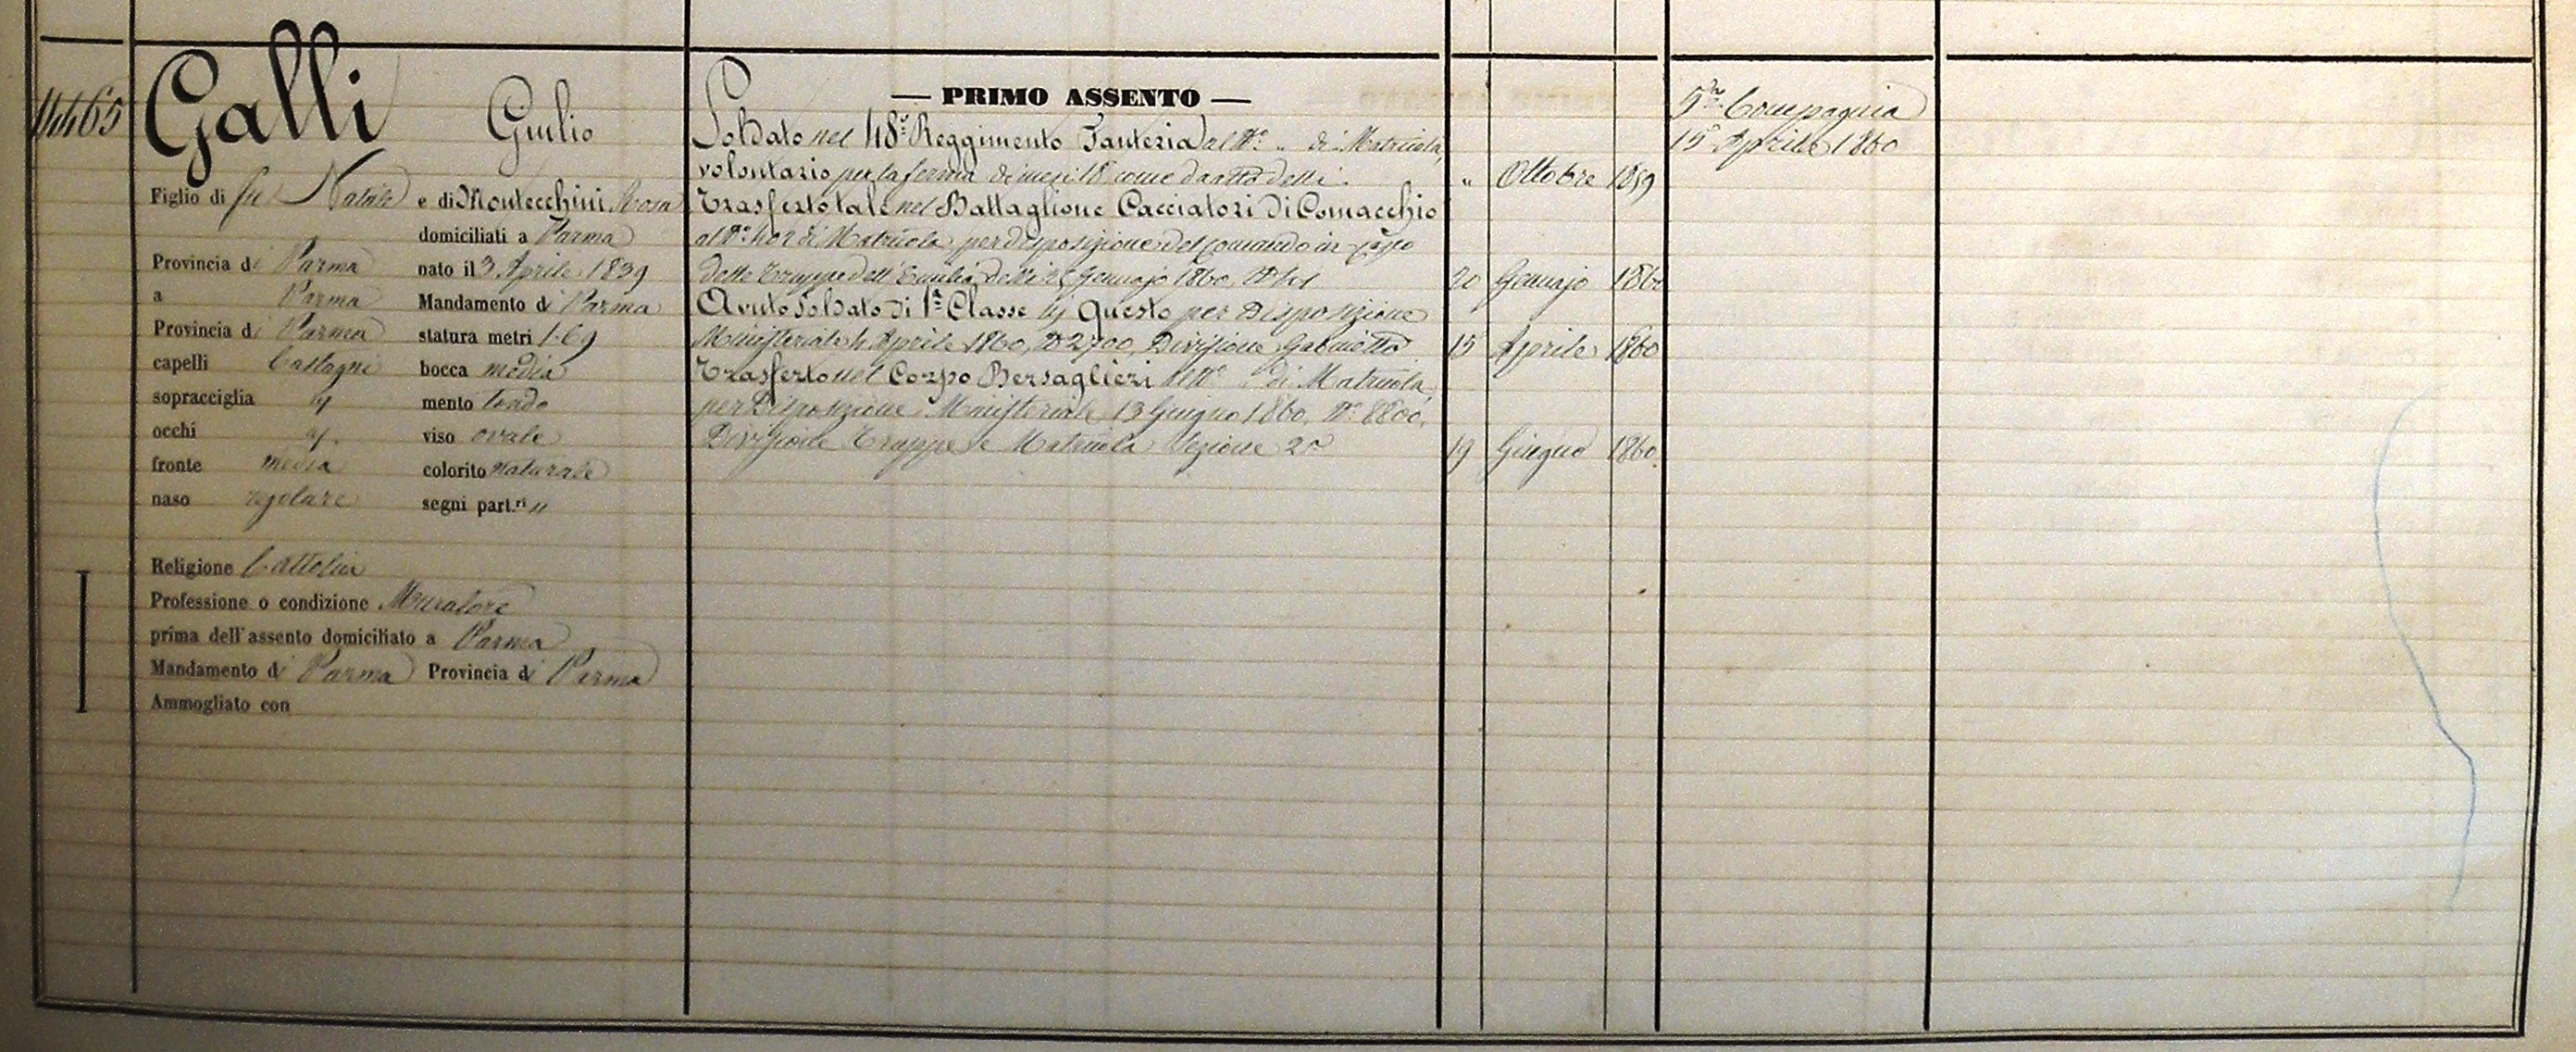 4465
Galli Giulio
Figlio di fu Natale e di Montecchini Rosa
domiciliati a Parma
Provincia di Parma nato il 3 Aprile 1839
a Parma Mandamento di Parma
Provincia di Parma statura metri 1.69
capelli Castagni bocca media
sopracciglia ij mento tondo
occhi ij. viso ovale
fronte media colorito naturale
naso regolare segni part.ri "
Religione Cattolica
Professione o condizione Muratore
prima dell'assento domiciliato a Parma
Mandamento di Parma Provincia di Parma
Ammogliato con
— PRIMO ASSENTO —
Soldato nel 48° Reggimento Fanteria al N° " di Matricola,
volontario per la ferma di mesi 18 come da atto delli " Ottobre 1859
Trasferto tale nel Battaglione Cacciatori di Comacchio
al N° di Matricola per disposizione del Comando in Capo
delle Truppe dell'Emilia delli Gennajo 1860, N° 20 Gennajo 1860
Avuto Soldato di 1ª Classe in Questo per Disposizione
Ministeriale 4 Aprile 1860, N° 2700, Divisione Gabinetto 15 Aprile 1860
Trasferto nel Corpo Bersaglieri al N° di Matricola,
per Disposizione Ministeriale 13 Giugno 1860. N° 8800,
Divisione Truppe e Matricola Sezione 2ª 19 Giugno 1860.
5ª Compagnia
15 Aprile 1860